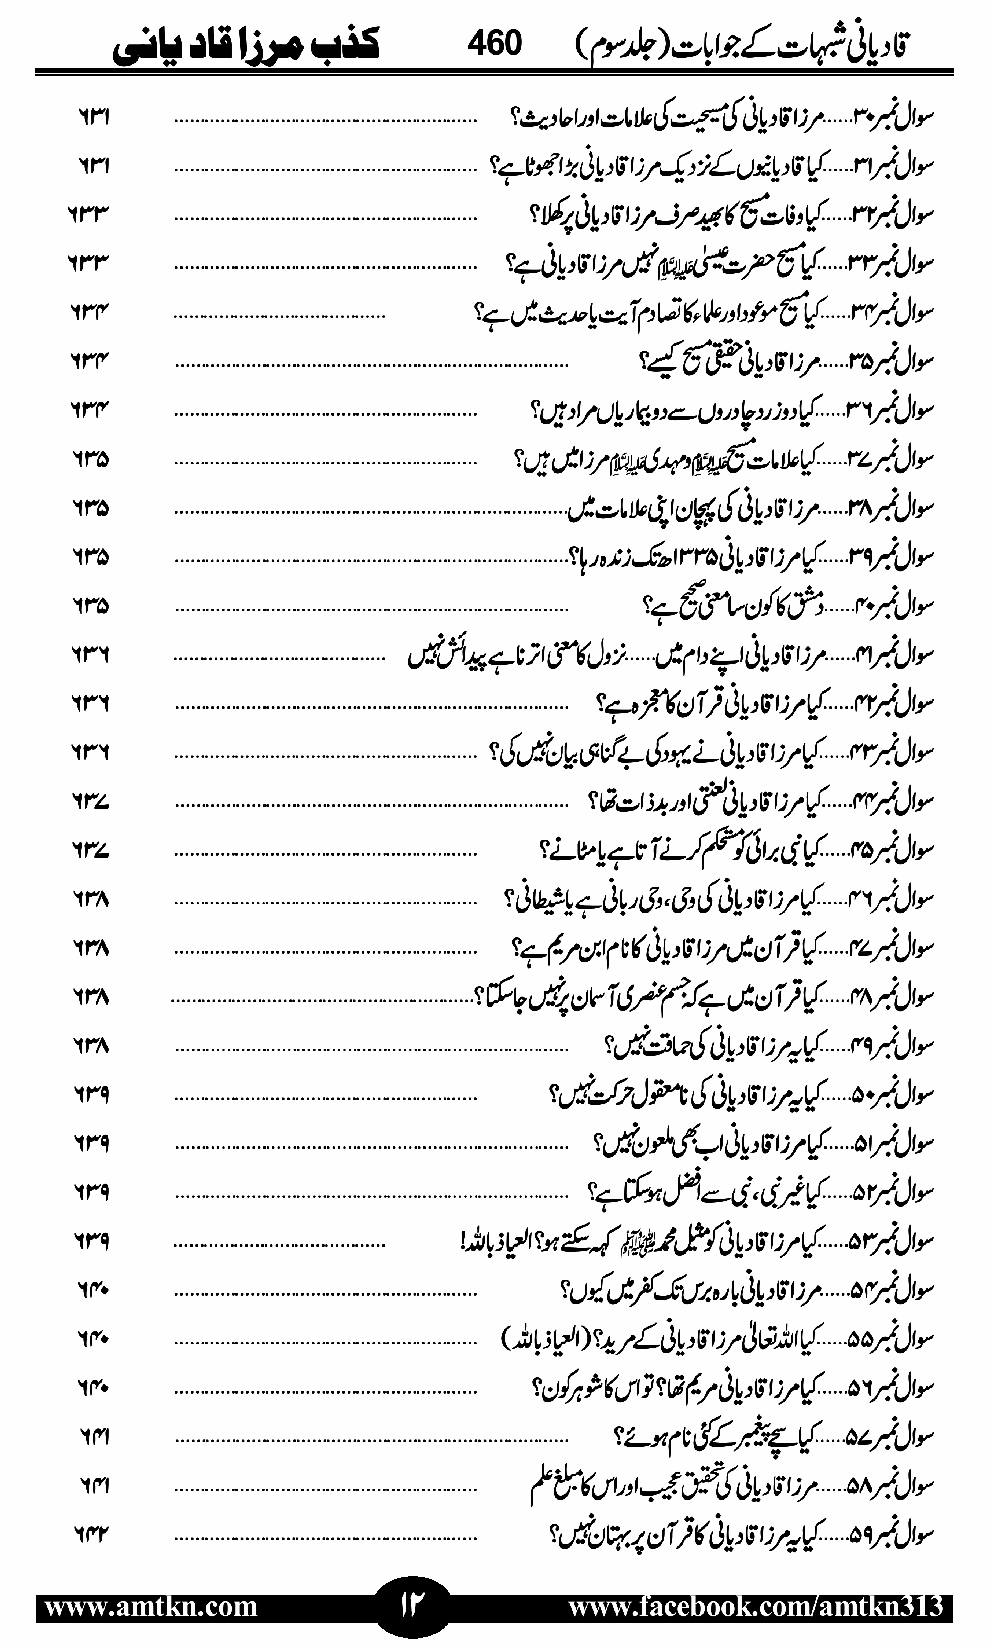 قادیانی شبہات کے جوابات (جلد سوم) 460 کذب مرزا قادیانی
سوال نمبر۳۰......مرزا قادیانی کی مسیحیت کی علامات اور احادیث؟ ........ ۶۳۱
سوال نمبر۳۱......کیا قادیانیوں کے نزدیک مرزا قادیانی بڑا جھوٹا ہے؟ ........ ۶۳۱
سوال نمبر۳۲......کیا وفات مسیح کا بھید صرف مرزا قادیانی پر کھلا؟ ........ ۶۳۳
سوال نمبر۳۳......کیا مسیح حضرت عیسیٰ علیہ السلام نہیں مرزا قادیانی ہے؟ ........ ۶۳۳
سوال نمبر۳۴......کیا مسیح موعود اور علماء کا تصادم آیت یا حدیث میں ہے؟ ........ ۶۳۴
سوال نمبر۳۵......مرزا قادیانی حقیقی مسیح کیسے؟ ........ ۶۳۴
سوال نمبر۳۶......کیا دو زرد چادروں سے دو بیماریاں مراد ہیں؟ ........ ۶۳۴
سوال نمبر۳۷......کیا علامات مسیح علیہ السلام ومہدی علیہ السلام مرزا میں ہیں؟ ........ ۶۳۵
سوال نمبر۳۸......مرزا قادیانی کی پہچان اپنی علامات میں ........ ۶۳۵
سوال نمبر۳۹......کیا مرزا قادیانی ۱۳۳۵ھ تک زندہ رہا؟ ........ ۶۳۵
سوال نمبر۴۰......دمشق کا کون سا معنی صحیح ہے؟ ........ ۶۳۵
سوال نمبر۴۱......مرزا قادیانی اپنے دام میں......نزول کا معنی اترنا ہے پیدائش نہیں ........ ۶۳۶
سوال نمبر۴۲......کیا مرزا قادیانی قرآن کا معجزہ ہے؟ ........ ۶۳۶
سوال نمبر۴۳......کیا مرزا قادیانی نے یہود کی بے گناہی بیان نہیں کی؟ ........ ۶۳۶
سوال نمبر۴۴......کیا مرزا قادیانی لعنتی اور بد ذات تھا؟ ........ ۶۳۷
سوال نمبر۴۵......کیا نبی برائی کو مستحکم کرنے آتا ہے یا مٹانے؟ ........ ۶۳۷
سوال نمبر۴۶......کیا مرزا قادیانی کی وحی، وحی ربانی ہے یا شیطانی؟ ........ ۶۳۸
سوال نمبر۴۷......کیا قرآن میں مرزا قادیانی کا نام ابن مریم ہے؟ ........ ۶۳۸
سوال نمبر۴۸......کیا قرآن میں ہے کہ جسم عنصری آسمان پر نہیں جاسکتا؟ ........ ۶۳۸
سوال نمبر۴۹......کیا یہ مرزا قادیانی کی حماقت نہیں؟ ........ ۶۳۸
سوال نمبر۵۰......کیا یہ مرزا قادیانی کی نامعقول حرکت نہیں؟ ........ ۶۳۹
سوال نمبر۵۱......کیا مرزا قادیانی اب بھی ملعون نہیں؟ ........ ۶۳۹
سوال نمبر۵۲......کیا غیر نبی، نبی سے افضل ہوسکتا ہے؟ ........ ۶۳۹
سوال نمبر۵۳......کیا مرزا قادیانی کو مثیل محمد ﷺ کہہ سکتے ہو؟ العیاذ باللہ! ........ ۶۳۹
سوال نمبر۵۴......مرزا قادیانی بارہ برس تک کفر میں کیوں؟ ........ ۶۴۰
سوال نمبر۵۵......کیا اللہ تعالیٰ مرزا قادیانی کے مرید؟ (العیاذ باللہ) ........ ۶۴۰
سوال نمبر۵۶......کیا مرزا قادیانی مریم تھا؟ تو اس کا شوہر کون؟ ........ ۶۴۰
سوال نمبر۵۷......کیا سچے پیغمبر کے کئی نام ہوئے؟ ........ ۶۴۱
سوال نمبر۵۸......مرزا قادیانی کی تحقیق عجیب اور اس کا مبلغ علم ........ ۶۴۱
سوال نمبر۵۹......کیا یہ مرزا قادیانی کا قرآن پر بہتان نہیں؟ ........ ۶۴۲
www.amtkn.com ۱۲ www.facebook.com/amtkn313